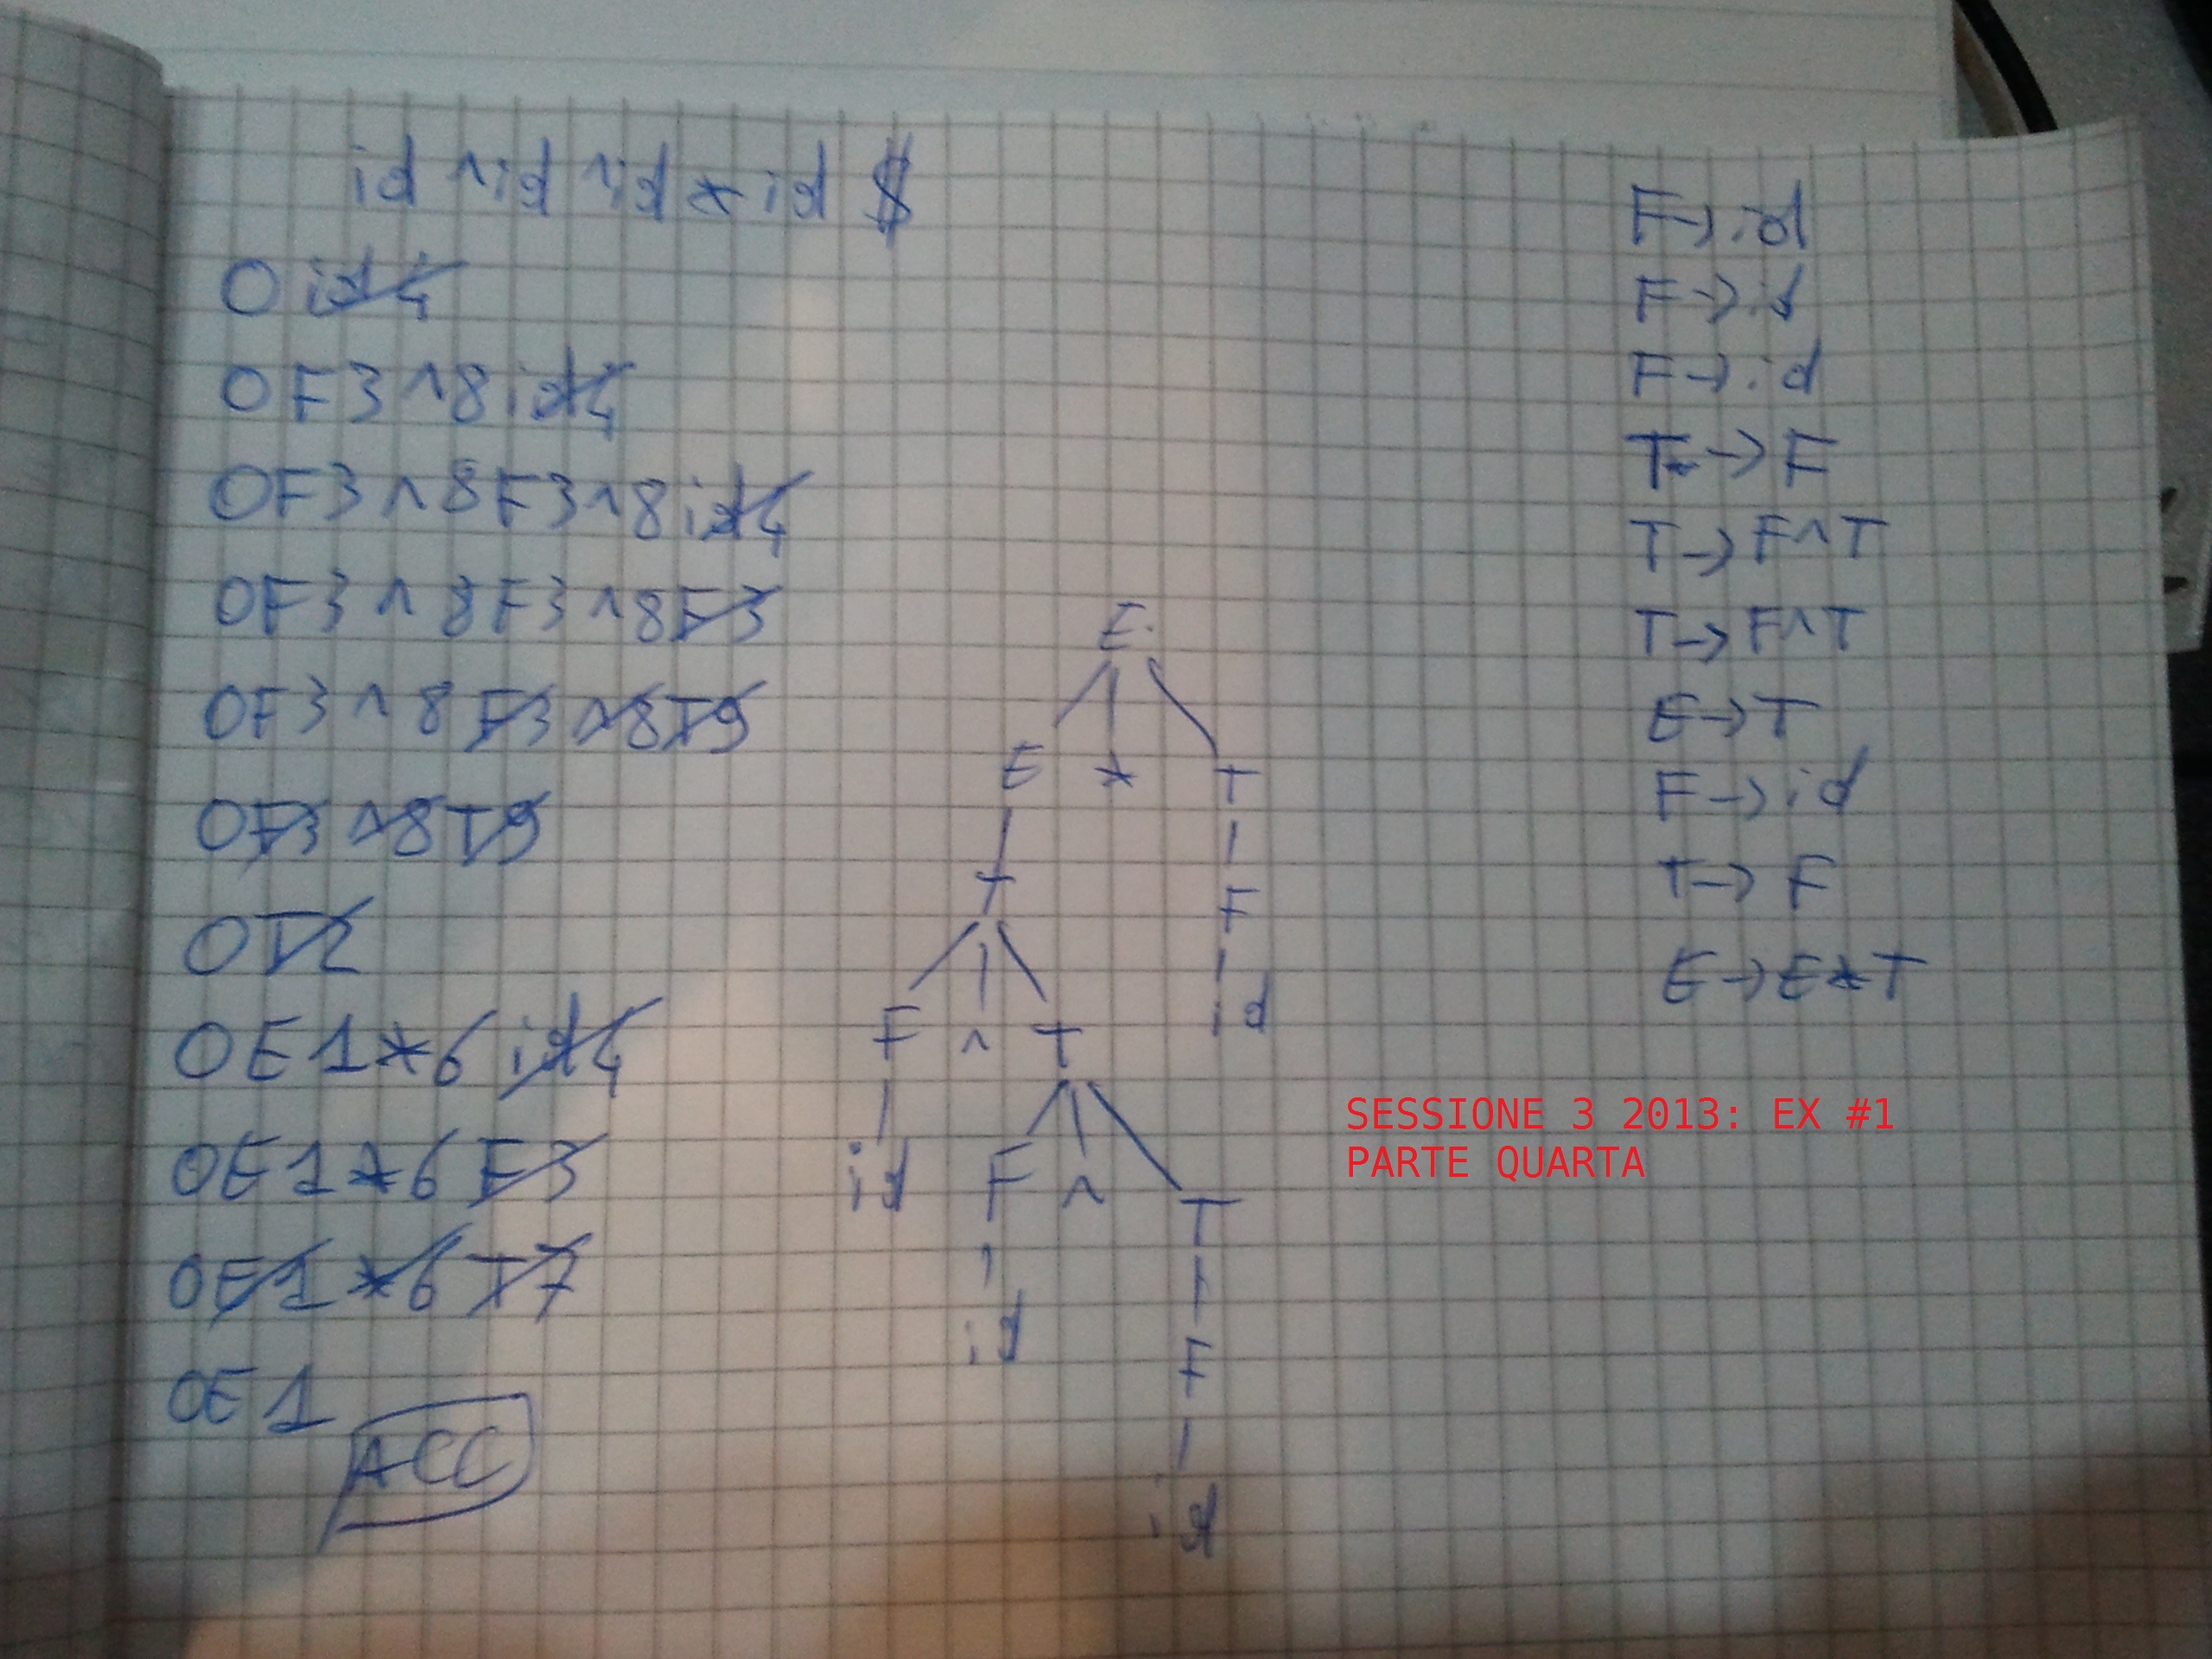 id ^ id ^ id * id $
0 id 4
0 F 3 ^ 8 id 4
0 F 3 ^ 8 F 3 ^ 8 id 4
0 F 3 ^ 8 F 3 ^ 8 F 3
0 F 3 ^ 8 F 3 ^ 8 T 9
0 F 3 ^ 8 T 9
0 T 2
0 E 1 * 6 id 4
0 E 1 * 6 F 3
0 E 1 * 6 T 7
0 E 1
ACC
E
E * T
T F
F ^ T id
id F ^ T
id F
id
F → id
F → id
F → id
T → F
T → F ^ T
T → F ^ T
E → T
F → id
T → F
E → E * T
SESSIONE 3 2013: EX #1
PARTE QUARTA